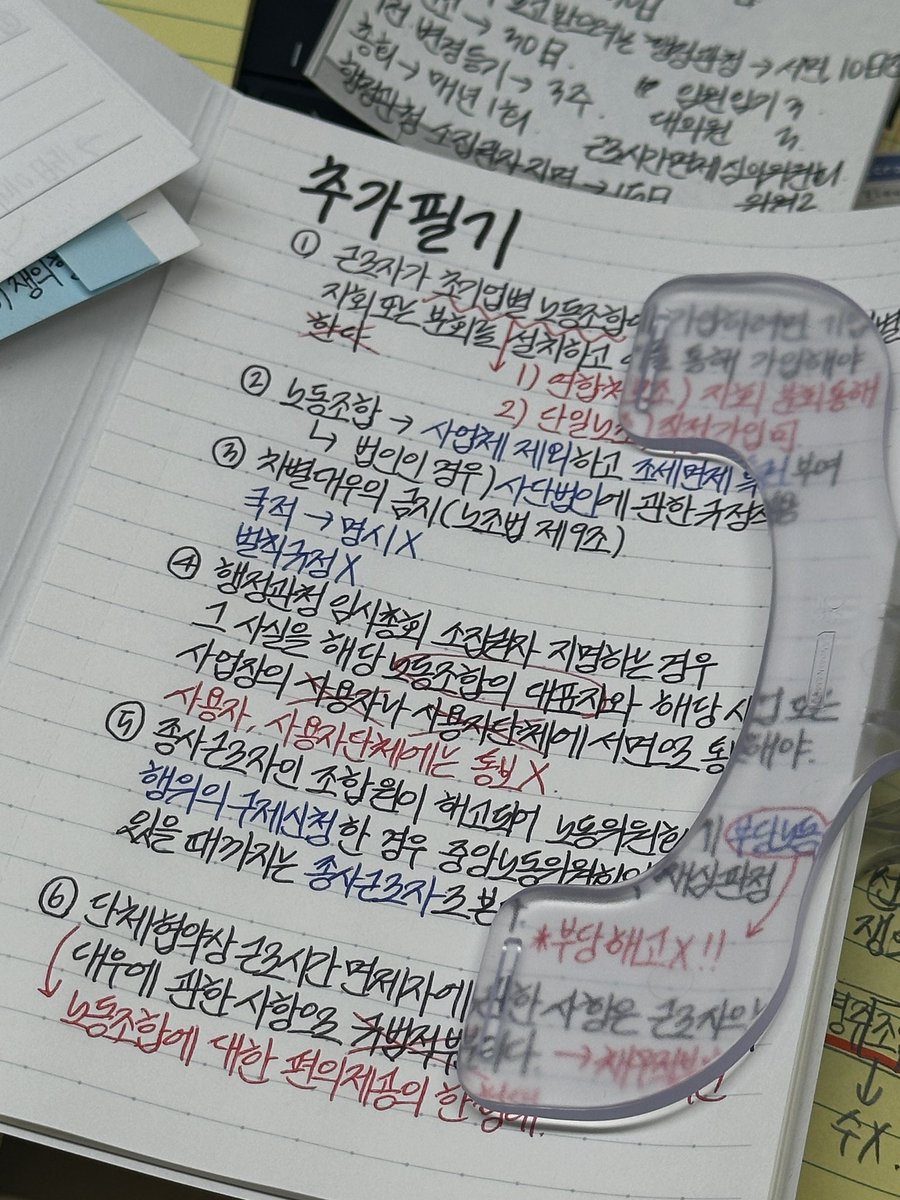 변경등기 → 30일.
총회 → 매년 1회
→ 3주
임원임기 3
대의원 3
행정관청 소집권자 지명 → 15일
근로시간면제심의위원회
추가필기
① 근로자가 초기업별 노동조합에 가입하려면 기업별
지회 또는 분회를 설치하고 이를 통해 가입해야
한다.
1) 연합체 노조) 지회 분회통해
2) 단일노조) 직접가입 可
② 노동조합 → 사업체 제외하고 조세면제 부여
↳ 법인인 경우) 사단법인에 관한 규정
③ 차별대우의 금지 (노조법 제9조)
국적 → 명시 X
벌칙규정 X
④ 행정관청 임시총회 소집권자 지명하는 경우
그 사실을 해당 노동조합의 대표자와 해당 사업 또는
사업장의 사용자나 사용자단체에 서면으로 통보해야.
사용자, 사용자단체에는 통보 X.
⑤ 종사근로자인 조합원이 해고되어 노동위원회에 부당노동
행위의 구제신청 한 경우 중앙노동위원회의 재심판정
있을 때까지는 종사근로자로 본
*부당해고 X !!
⑥ 단체협약상 근로시간 면제자에 대한 사항은 근로자의
대우에 관한 사항으로 규범적부분이다. →
노동조합에 대한 편의제공의 한 형태.
수 X.